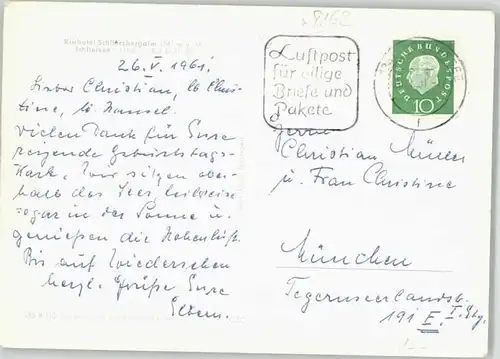 8162
Kurhotel Schliersbergalm
Schliersee
26.V.1961.
Lieber Christian, lb Chris-
tine, lb
Vielen Dank für Eure
reizende Geburtstags-
karte, wir sitzen ober-
halb des Sees teilweise
sogar in der Sonne u.
genießen die Höhenluft.
Bis auf Wiedersehen
herzl. Grüße Eure
Eltern.
Luftpost
für eilige
Briefe und
Pakete
DEUTSCHE BUNDESPOST
10
Herrn
Christian Müller
u. Frau Christine
München
Tegernseerlandstr.
191 E. I. Stg.